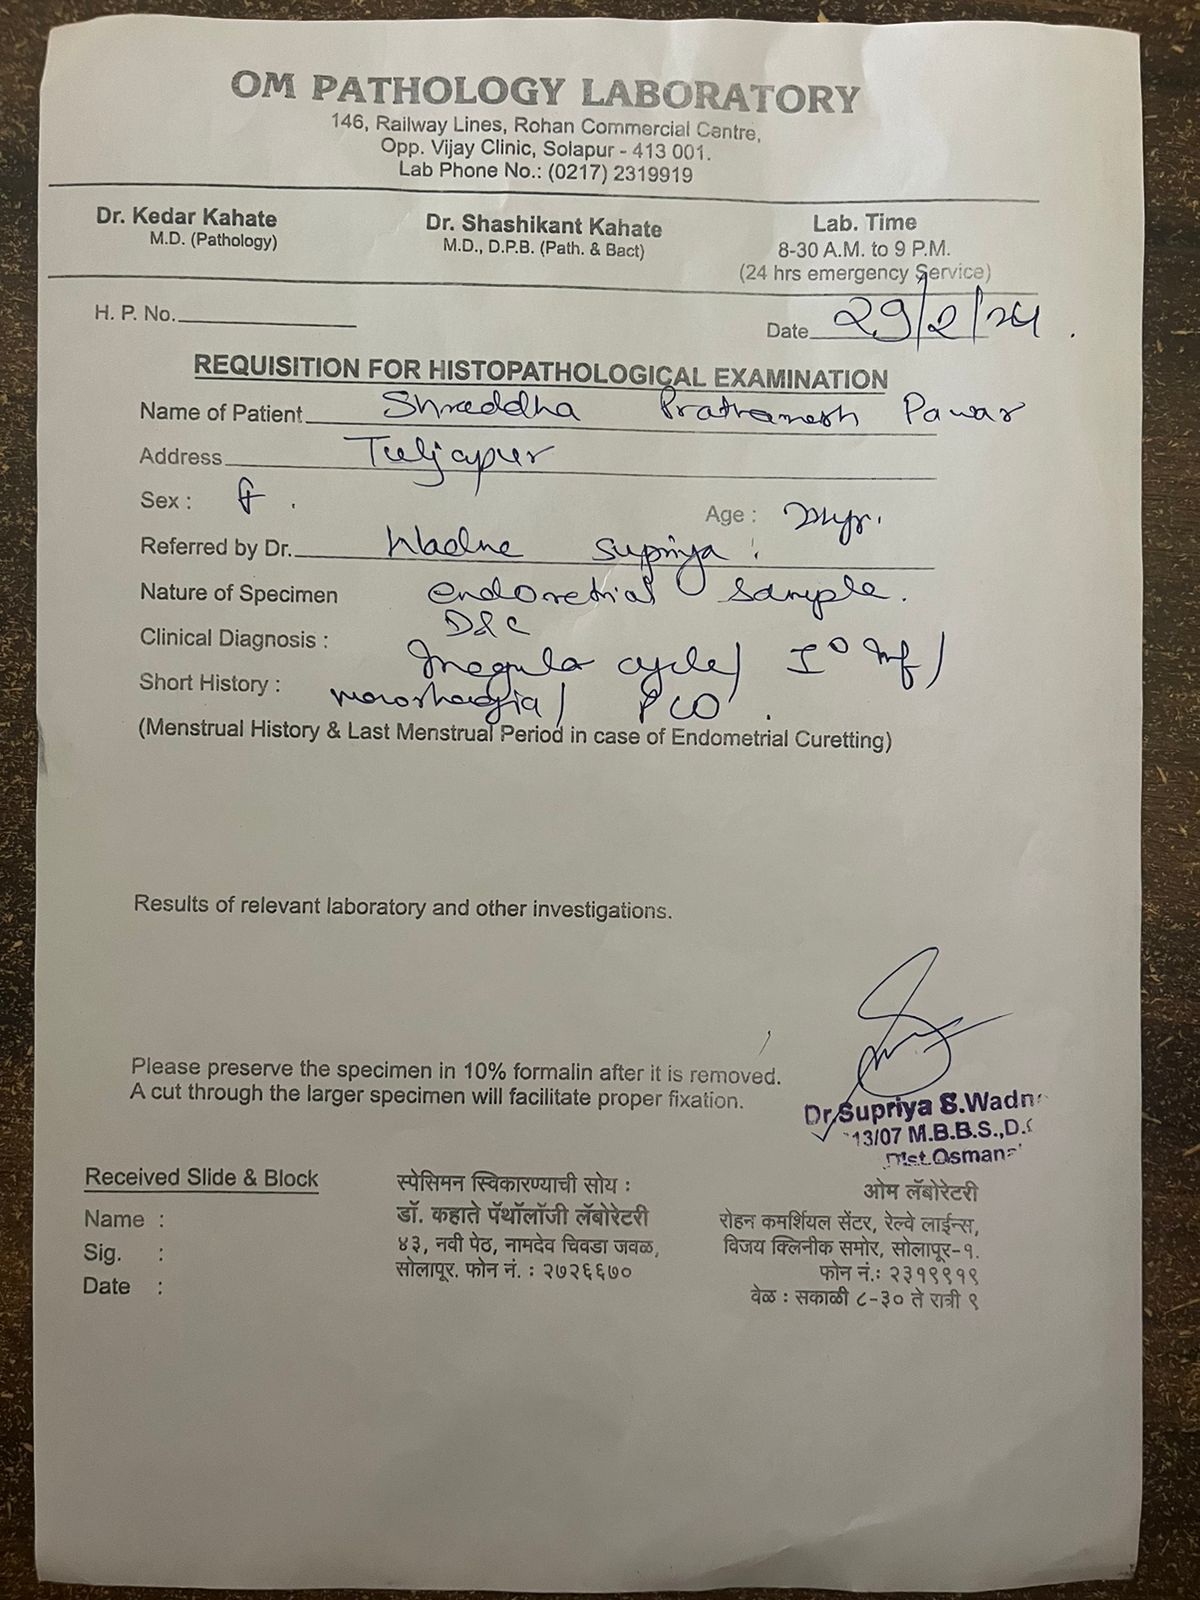 OM PATHOLOGY LABORATORY
146, Railway Lines, Rohan Commercial Centre,
Opp. Vijay Clinic, Solapur - 413 001.
Lab Phone No.: (0217) 2319919
Dr. Kedar Kahate
M.D. (Pathology)
Dr. Shashikant Kahate
M.D., D.P.B. (Path. & Bact)
Lab. Time
8-30 A.M. to 9 P.M.
(24 hrs emergency Service)
H. P. No.
Date 29/2/24
REQUISITION FOR HISTOPATHOLOGICAL EXAMINATION
Name of Patient Shraddha Prathamesh Pawar
Address Tuljapur
Sex : F. Age :
Referred by Dr. Wadne Supriya.
Nature of Specimen endometrial sample.
D&C
Clinical Diagnosis : Irregular cycle/ I°
Short History : menorrhagia/ PCO.
(Menstrual History & Last Menstrual Period in case of Endometrial Curetting)
Results of relevant laboratory and other investigations.
Please preserve the specimen in 10% formalin after it is removed.
A cut through the larger specimen will facilitate proper fixation.
Dr.Supriya S.Wadn
13/07 M.B.B.S.,D.
Dist.Osmana
Received Slide & Block
Name :
Sig. :
Date :
स्पेसिमन स्विकारण्याची सोय :
डॉ. कहाते पॅथॉलॉजी लॅबोरेटरी
४३, नवी पेठ, नामदेव चिवडा जवळ,
सोलापूर. फोन नं. : २७२६६७०
ओम लॅबोरेटरी
रोहन कमर्शियल सेंटर, रेल्वे लाईन्स,
विजय क्लिनीक समोर, सोलापूर-१.
फोन नं.: २३१९९१९
वेळ : सकाळी ८-३० ते रात्री ९